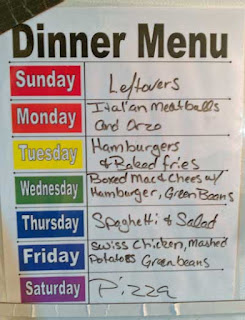 Dinner Menu
Sunday
Leftovers
Monday
Italian meatballs
and Orzo
Tuesday
Hamburgers
& Baked fries
Wednesday
Boxed Mac & Chees w/
Hamburger, Green Beans
Thursday
Spaghetti & Salad
Friday
Swiss Chicken, Mashed
Potatoes Greenbeans
Saturday
Pizza